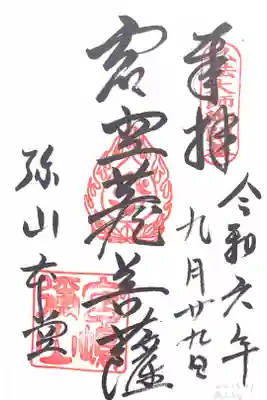 奉拝
令和六年
九月廿九日
虚空蔵菩薩
弥山本堂